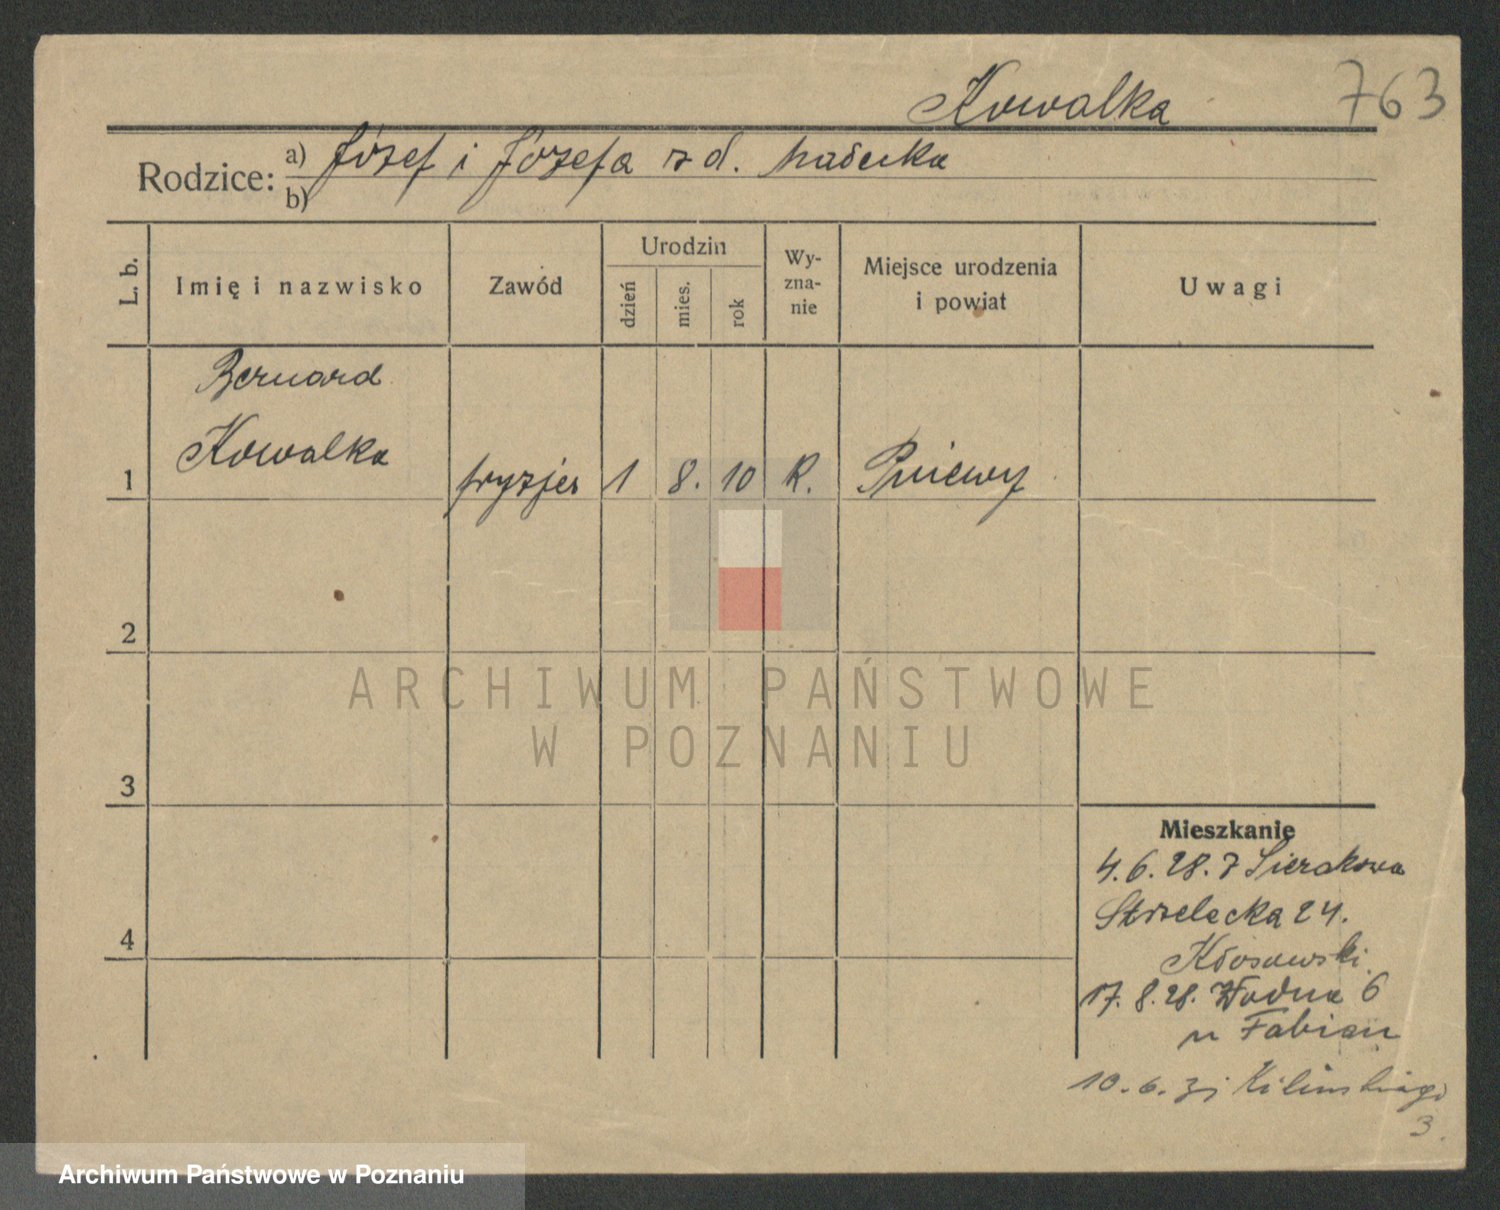 Kowalka 763
Rodzice: a) Józef i Józefa z d.
b)
L. b. Imię i nazwisko Zawód Urodzin dzień mies. rok Wy-zna-nie Miejsce urodzenia i powiat Uwagi
Bernard
Kowalka
1 fryzjer 1 8. 10 R. Pniewy
2
ARCHIWUM PAŃSTWOWE
W POZNANIU
3
Mieszkanie
4.6.28. z Sierakowa
Strzelecka 24.
4
Kłosowski
17.8.28. Wodna 6
u Fabian
10.6. Kilińskiego
3.
Archiwum Państwowe w Poznaniu